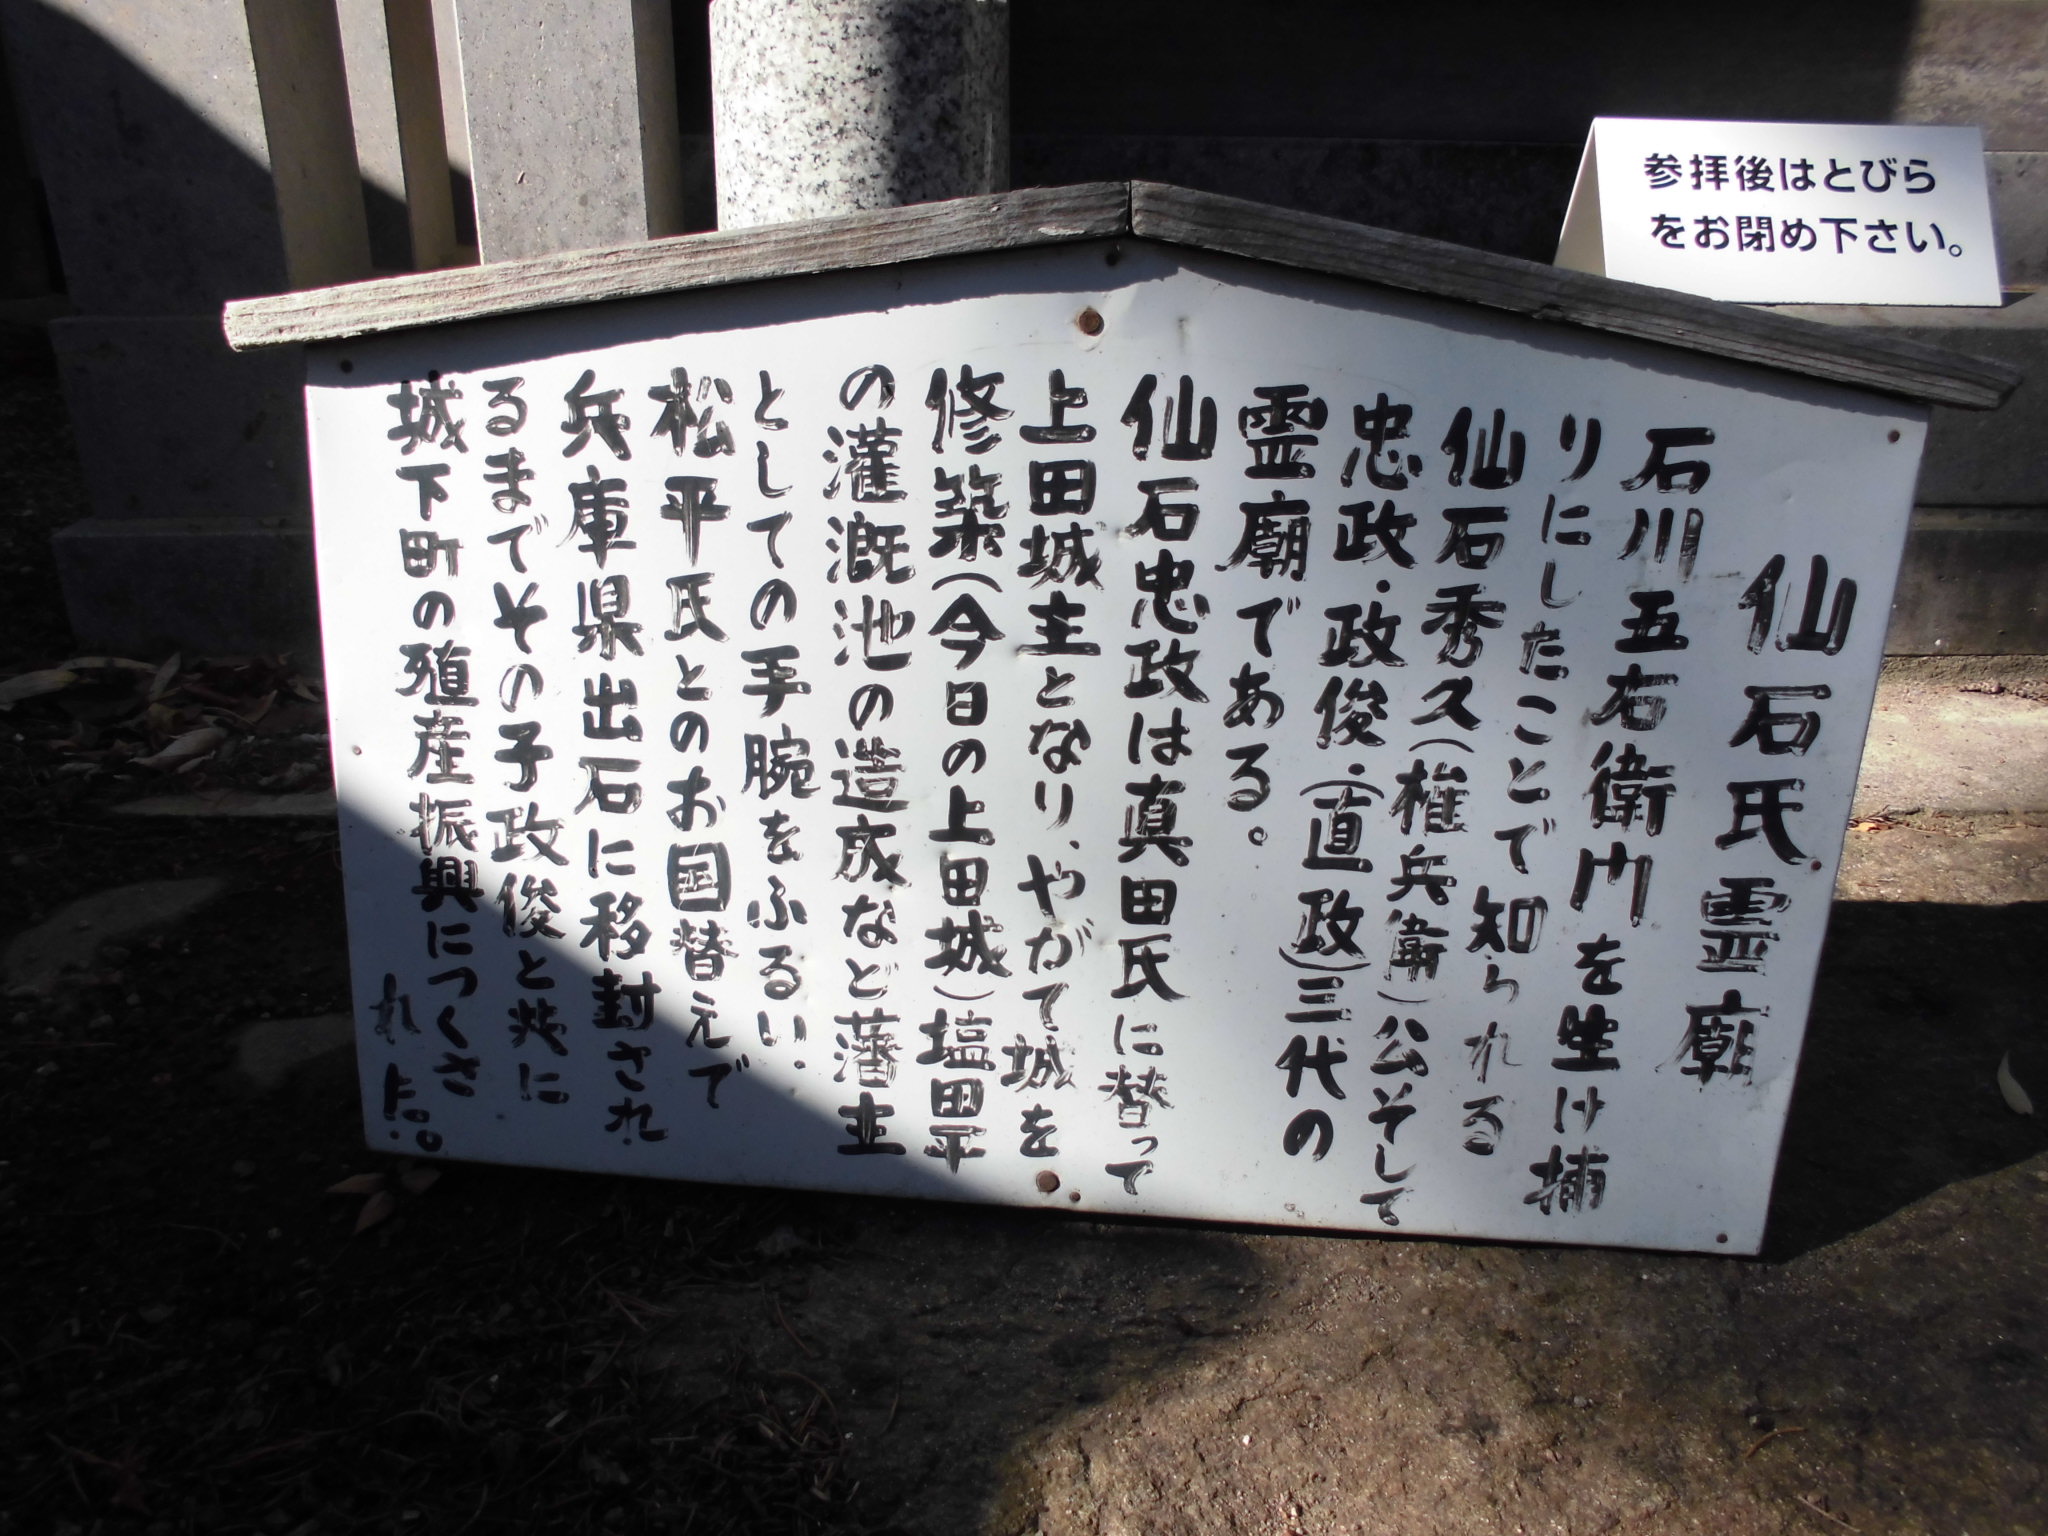 仙石氏霊廟
石川五右衛門を生け捕
りにしたことで知られる
仙石秀久(権兵衛)公そして
忠政・政俊・(直政)三代の
霊廟である。
仙石忠政は真田氏に替って
上田城主となり、やがて城を
修築(今日の上田城)塩田平
の灌漑池の造成など藩主
としての手腕をふるい、
松平氏とのお国替えで
兵庫県出石に移封され
るまでその子政俊と共に
城下町の殖産振興につくさ
れた。
参拝後はとびら
をお閉め下さい。